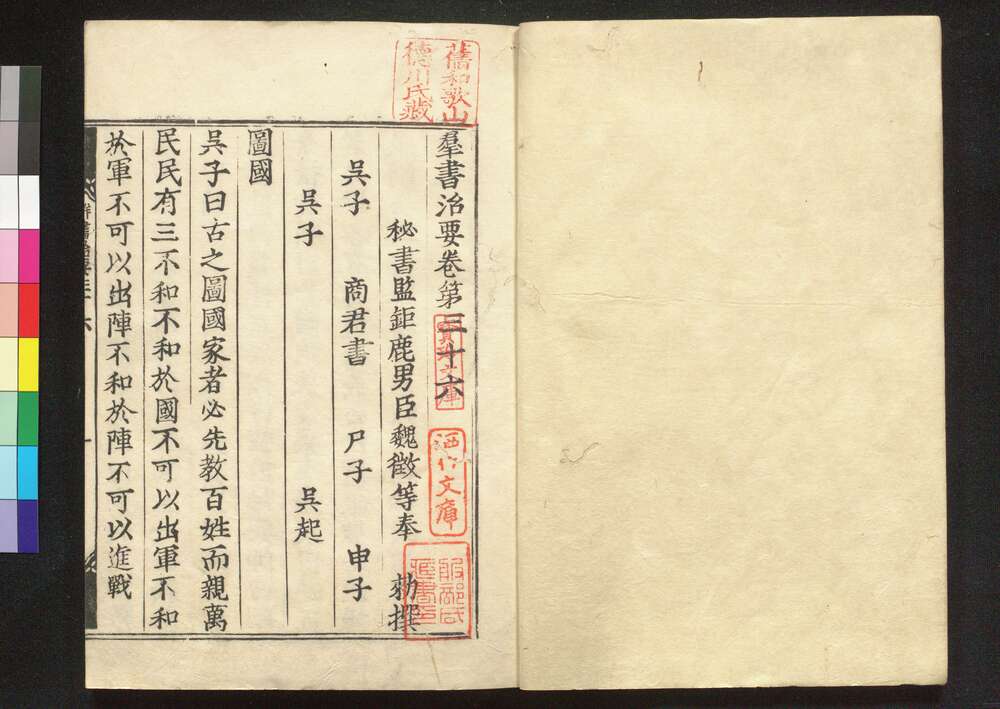 羣書治要卷第三十六
秘書監鉅鹿男臣魏徵等奉 勑撰
吳子 商君書 尸子 申子
吳子 吳起
圖國
吳子曰古之圖國家者必先教百姓而親萬
民民有三不和不和於國不可以出軍不和
於軍不可以出陣不和於陣不可以進戰
舊和歌山
德川氏藏
洒竹文庫
服部氏